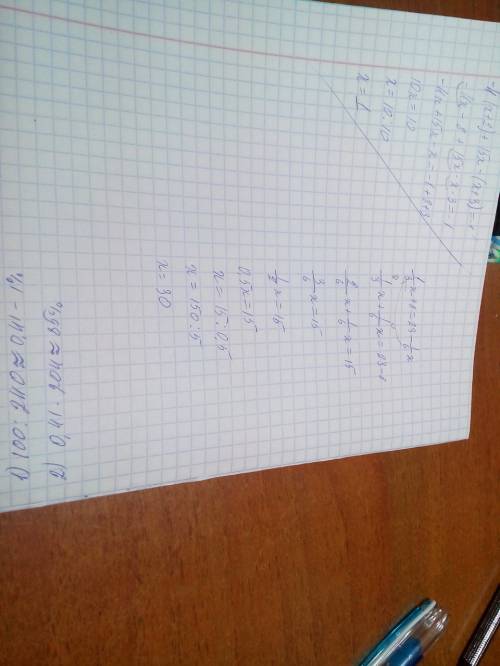 -4x-8+15x-x-3=-1
-4x+15x-x=-1+8+3
10x=10
x=10:10
x=1
1/3x+8=23-1/6x
1/3x+1/6x=23-8
2/6x+1/6x=15
3/6x=15
1/2x=15
0,5x=15
x=15:0,5
x=150:5
x=30
1) 100:240≈0,41-1%
2) 0,41·204≈85%